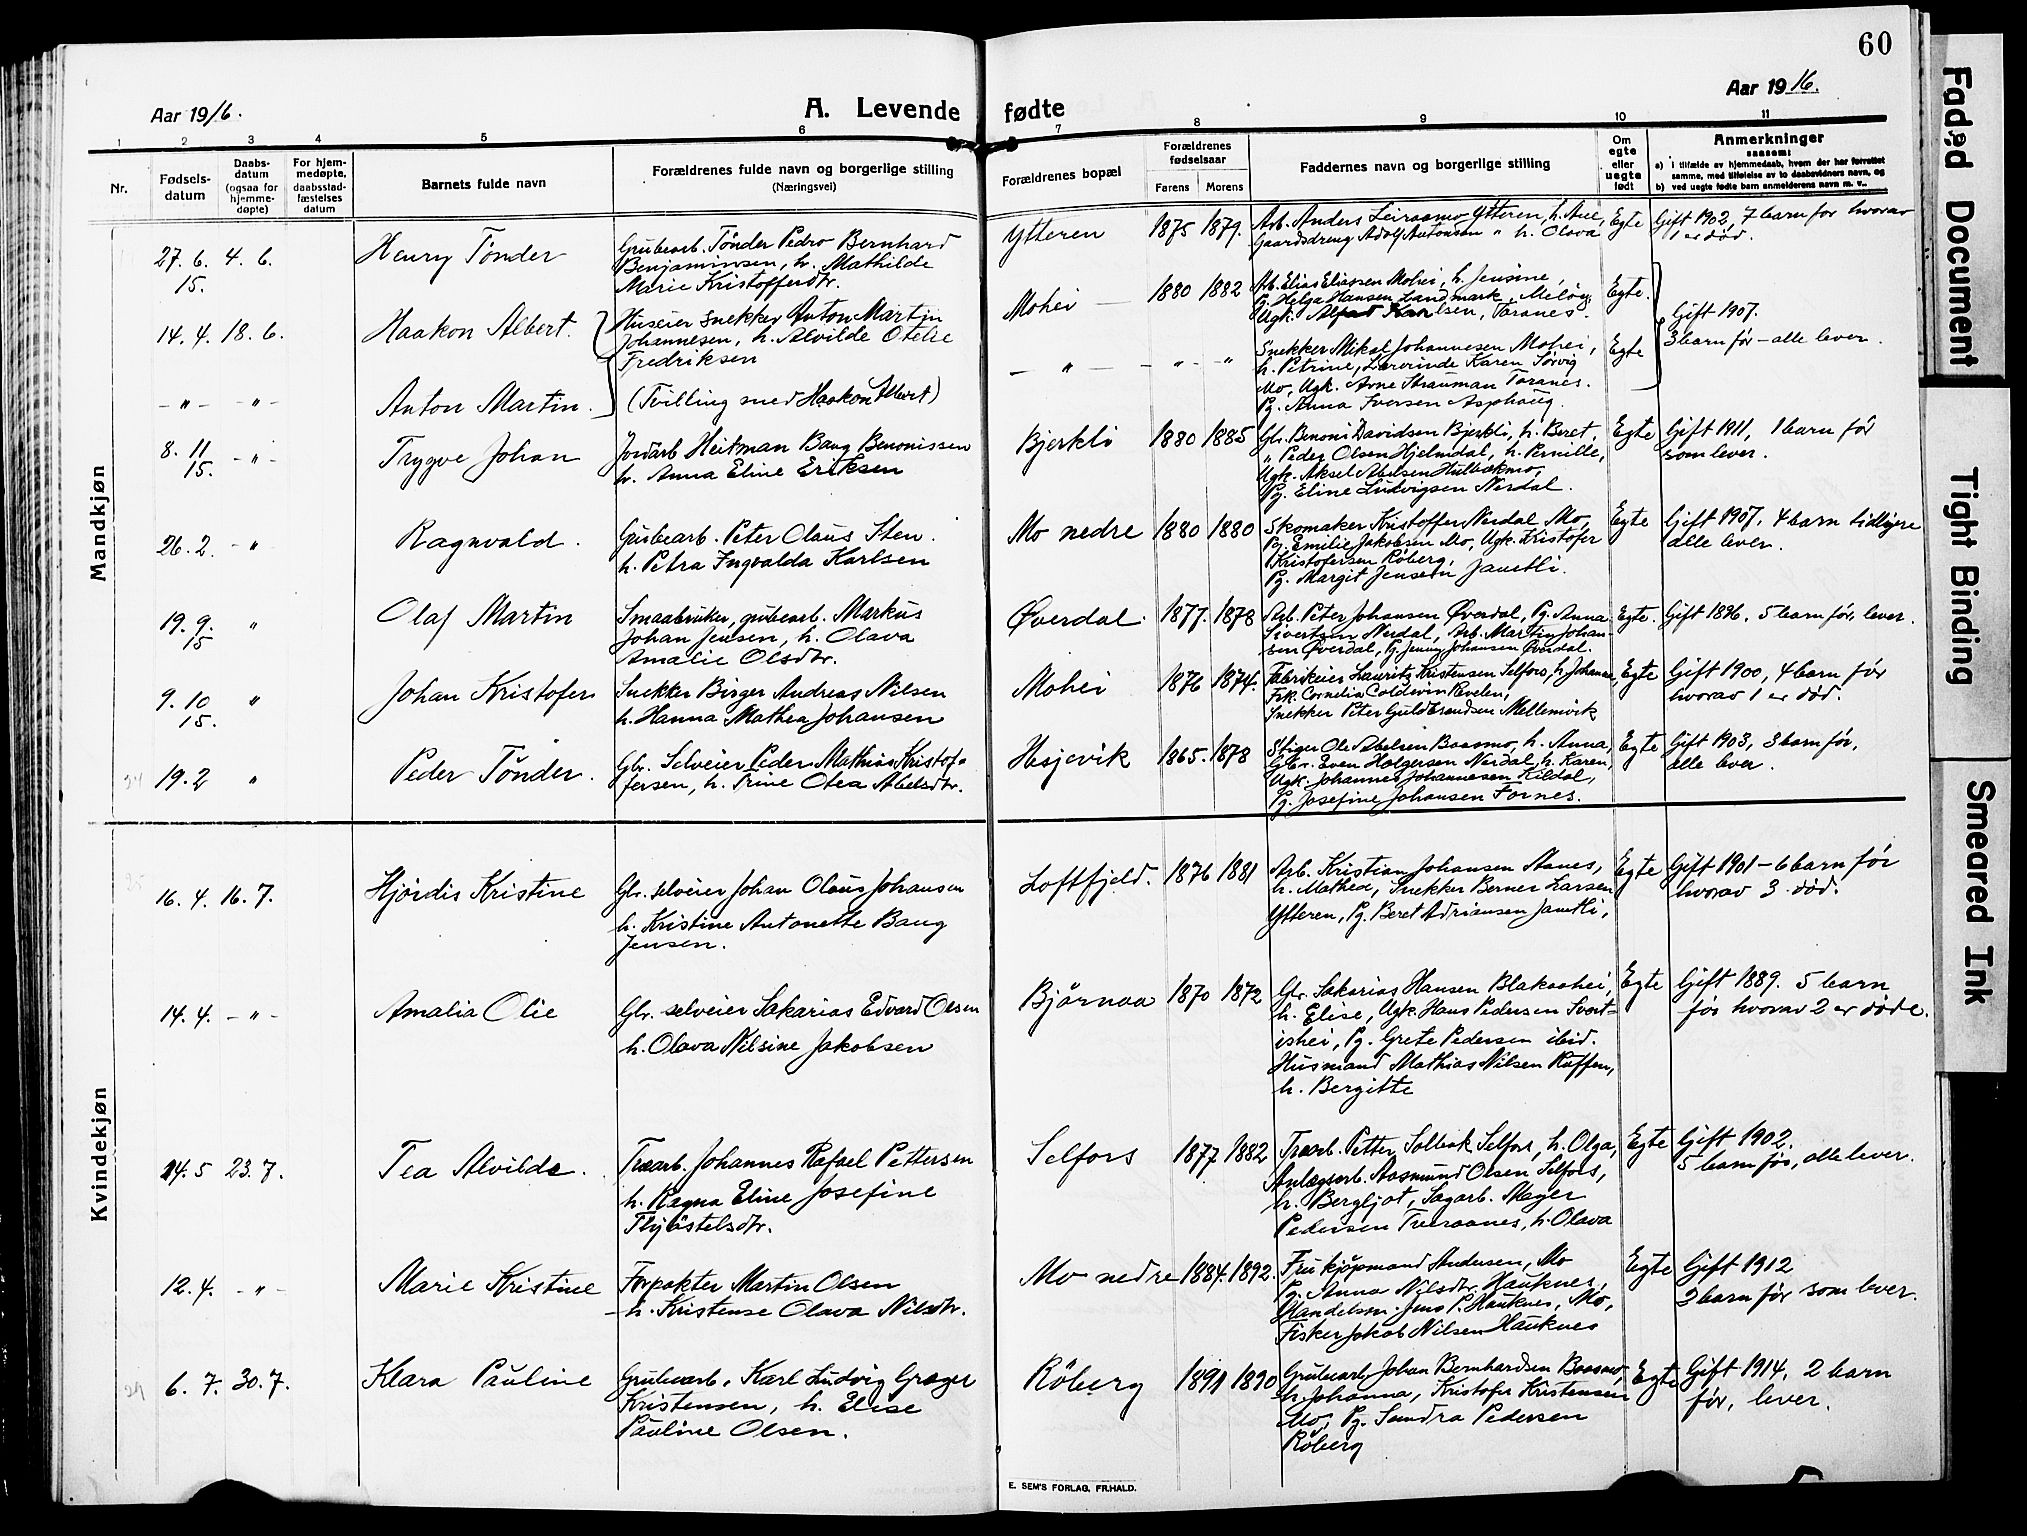 60
Aar 1916.
A. Levende fødte
Aar 1916.
1 2 3 4 5 6 7 8 9 10 11
Nr.
Fødsels-
datum
Daabs-
datum
(ogsaa for
hjemme-
døpte)
For hjem-
medøpte,
daabsstad-
fæstelses
datum
Barnets fulde navn
Forældrenes fulde navn og borgerlige stilling
(Næringsvei)
Forældrenes bopæl
Forældrenes
fødselsaar
Farens Morens
Faddernes navn og borgerlige stilling
Om
egte
eller
uegte
født
Anmerkninger
saasom:
a) i tilfælde av hjemmedaab, hvem der har forrettet
samme, med tilføielse av to daabsvidners navn, og
b) ved uegte fødte barn anmelderens navn m. v..
Mandkjøn
27. 6. 4. 6.
15.
Henry Tønder
Grubearb. Tønder Pedro Bernhard
Benjaminsen, h. Mathilde
Marie Kristoffersdtr.
Ytteren
1875 1879.
Arb. Anders Leiraamo Ytteren, h. Ane,
Gaardsdreng Adolf Antonsen " h. Olava
Egte
Gift 1902, 7 barn før hvorav
1 er død.
14. 4. 18. 6.
Haakon Albert.
Huseier snekker Anton Martin
Johannesen, h. Alvilde Otelie
Fredriksen
Mohei
1880 1882
Arb. Elias Eliassen Mohei, h. Jensine,
Pg. Helga Hansen Landmark, Meløy,
Ugk. Alfred Karlsen, Toranes.
Egte.
Gift 1907.
3 barn før - alle lever.
- " - - " -
Anton Martin.
(Tvilling med Haakon Albert)
- " - - " - "
Snekker Mikal Johannesen Mohei,
h. Petrine, Lærerinde Karen Sørvig
Mo, Ugk. Arne Strauman Toranes.
Pg. Anna Iversen Asphaug.
Egte
8. 11 - " -
15.
Trygve Johan
Jordarb Heitman Bang Benonissen
h. Anna Eline Eriksen
Bjerkli
1880 1885
Gbr. Benoni Davidsen Bjerkli, h. Beret,
" Peder Olsen Hjelmdal, h. Pernille,
Ugk. Aksel Abelsen Hulbækmo,
Pg. Eline Ludvigsen Nerdal.
Egte
Gift 1911, 1 barn før
som lever.
26. 2. - " -
Ragnvald.
Grubearb. Peter Olaus Sten.
h. Petra Ingvalda Karlsen
Mo nedre
1880 1880
Skomaker Kristoffer Nerdal Mo,
Pg. Emilie Jakobsen Mo, Ugk. Kristofer
Kristofersen Røberg,
Pg. Margit Jensen Jamtli.
Egte
Gift 1907, 4 barn tidligere
alle lever.
19. 9. "
15
Olaf Martin
Smaabruker, grubearb. Markus
Johan Jensen, h. Olava
Amalie Olsdtr.
Øverdal.
1877. 1878
Arb. Peter Johansen Øverdal, Pg. Anna
Sivertsen Nerdal, Arb. Martin Johan-
sen Øverdal, Pg. Jenny Johansen Øverdal.
Egte.
Gift 1896, 5 barn før, lever.
9. 10 "
15.
Johan Kristofer
Snekker Birger Andreas Nilsen
h. Hanna Mathea Johansen
Mohei
1876 1874.
Fabrikeier Lauritz Kristensen Selfors, h. Johanna,
Frk. Cornelia Coldevin Revelen,
Snekker Peter Guldbrandsen Mellemvik
Egte
Gift 1900, 4 barn før
hvorav 1 er død.
19. 2 "
Peder Tønder.
Gbr. Selveier Peder Mathias Kristof-
fersen, h. Trine Olea Abelsdtr.
Hesjevik
1865. 1878
Stiger Ole Abelsen Baasmo, h. Anna,
Gbr. Even Holgersen Nerdal, h. Karen,
Ugk. Johannes Johannesen Kildal,
Pg. Josefine Johansen Fornes.
Egte
Gift 1903, 3 barn før,
alle lever.
Kvindekjøn
16. 4. 16. 7.
Hjørdis Kristine
Gbr. selveier Johan Olaus Johansen
h. Kristine Antonette Bang
Jensen.
Loftfjeld.
1876 1881
Arb. Kristian Johansen Aanes,
h. Mathea, Snekker Berner Larsen
Ytteren, Pg. Beret Adriansen Jamtli,
Egte
Gift 1901 - 6 barn før
hvorav 3 død.
14. 4. - " -
Amalia Olie
Gbr. selveier Sakarias Edvard Olsen
h. Olava Nilsine Jakobsen
Bjørnaa
1870 1872
Gbr. Sakarias Hansen Blakaahei,
h. Elise, Ugk. Hans Pedersen Svart-
ishei, Pg. Grete Pedersen ibid.
Husmand Mathias Nilsen Røffen,
h. Bergitte
Egte
Gift 1889. 5 barn
før hvorav 2 er døde.
14. 5 23. 7.
Tea Alvilde.
Træarb. Johannes Rafael Pettersen
h. Ragna Eline Josefine
Thjøstelsdtr.
Selfors
1877 1882
Træarb. Petter Solbak Selfors, h. Olga,
Anlægsarb. Aasmund Olsen Selfors,
h. Bergljot, Sagarb. Mayer
Pedersen Tveraanes, h. Olava
Egte
Gift 1902.
5 barn før, alle lever.
12. 4. - " -
Marie Kristine
Forpakter Martin Olsen
h. Kristense Olava Nilsdtr.
Mo nedre
1884. 1892.
Fru kjøpmand Andersen, Mo
Pg. Anna Nilsdtr. Hauknes,
Handelsm. Jens P. Hauknes, Mo,
Fisker Jakob Nilsen Hauknes
Egte
Gift 1912
2 barn før som lever.
6. 7. 30. 7.
Klara Pauline
Grubearb. Karl Ludvig Græger
Kristensen, h. Elise
Pauline Olsen.
Røberg
1891 1890
Grubearb. Johan Bernhardsen Baasmo,
h. Johanna, Kristofer Kristensen
Mo, Pg. Sandra Pedersen
Røberg
Egte
Gift 1914, 2 barn
før, lever.
E. SEM'S FORLAG, FR.HALD.
Faded Document
Tight Binding
Smeared Ink